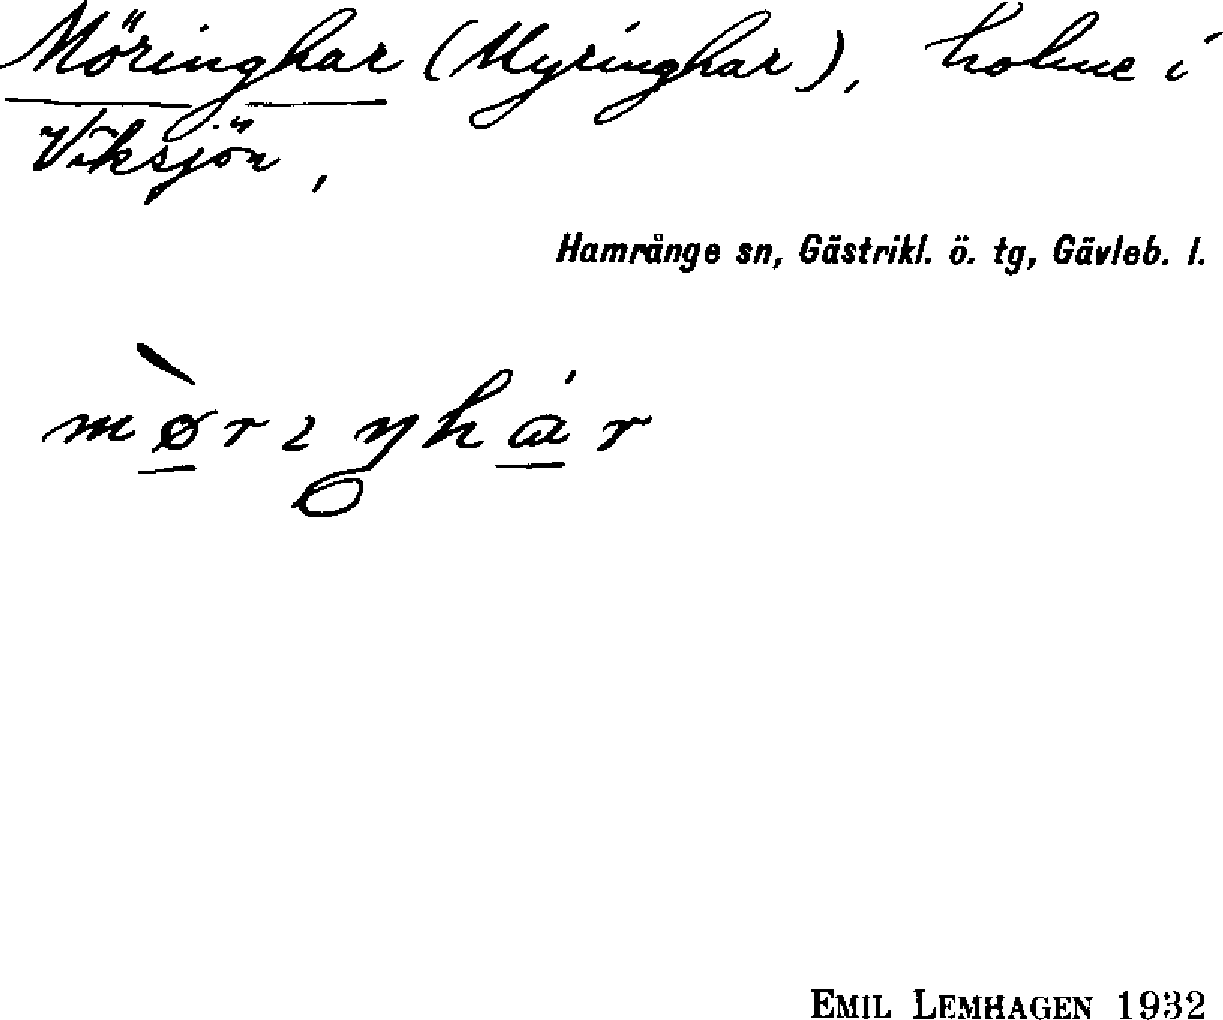 Möringhar (Myringhar), holme i
Viksjön,
Hamrånge sn, Gästrikl. ö. tg, Gävleb. l.
mø̀rɩŋhár
EMIL LEMHAGEN 1932